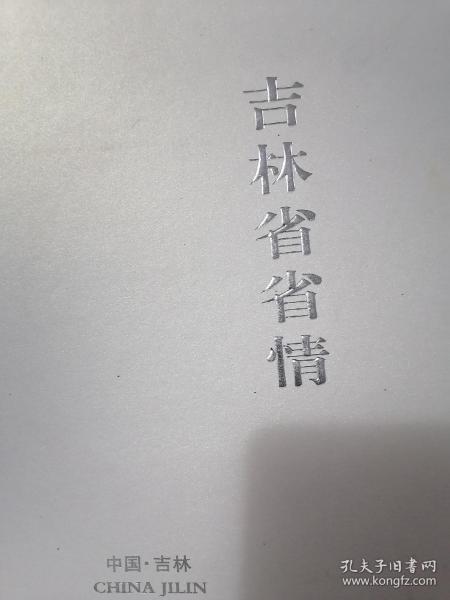 吉林省省情
中国·吉林
CHINA JILIN
孔夫子旧书网
www.kongfz.com